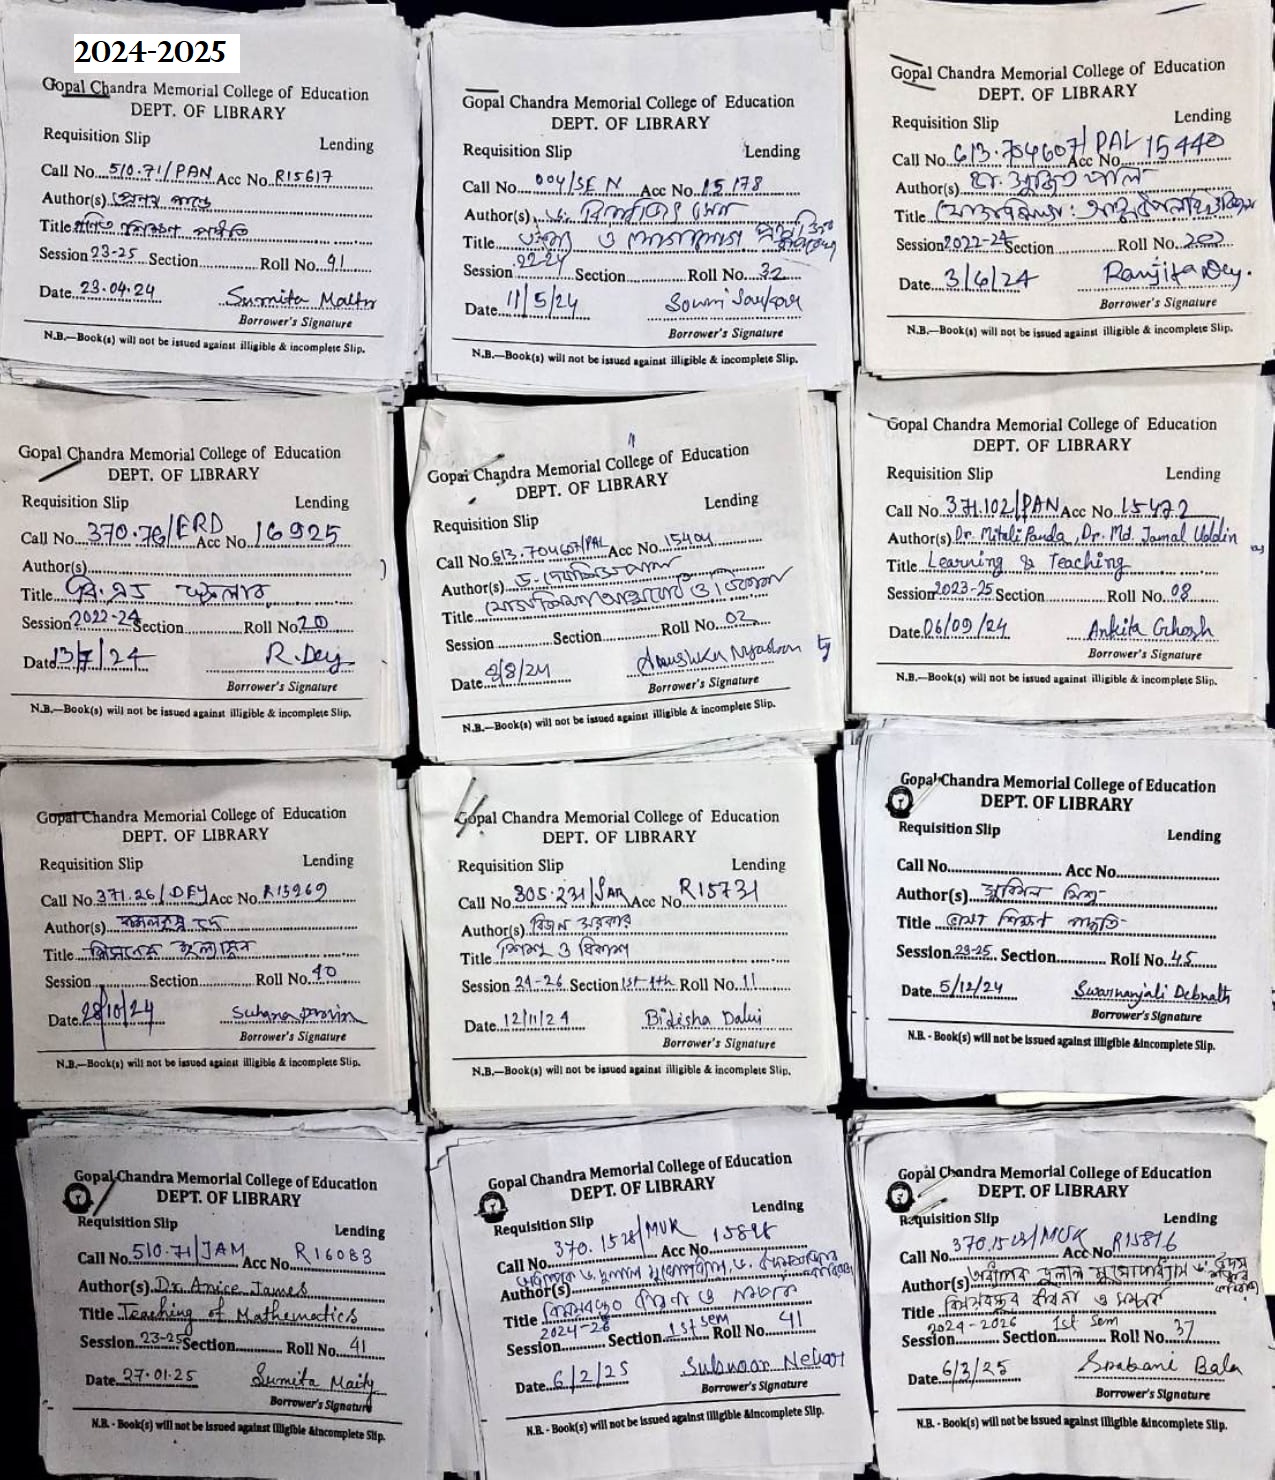 2024-2025
Gopal Chandra Memorial College of Education
DEPT. OF LIBRARY
Requisition Slip Lending
Call No. 510.71/PAN Acc No. R15617
Author(s) প্রনয় পান্ডে
Title গণিত শিক্ষণ পদ্ধতি
Session 23-25 Section Roll No. 91
Date 23.04.24 Sumita Maity
Borrower's Signature
N.B.—Book(s) will not be issued against illigible & incomplete Slip.
Gopal Chandra Memorial College of Education
DEPT. OF LIBRARY
Requisition Slip Lending
Call No. 004/SEN Acc No. 15178
Author(s)
Title ও
Session 22-24 Section Roll No. 32
Date 11/5/24 Soumi Sarkar
Borrower's Signature
N.B.—Book(s) will not be issued against illigible & incomplete Slip.
Gopal Chandra Memorial College of Education
DEPT. OF LIBRARY
Requisition Slip Lending
Call No. 613.704607/PAL Acc No. 15440
Author(s) পাল
Title
Session 2022-24 Section Roll No. 20
Date 3/6/24 Ranjita Dey.
Borrower's Signature
N.B.—Book(s) will not be issued against illigible & incomplete Slip.
Gopal Chandra Memorial College of Education
DEPT. OF LIBRARY
Requisition Slip Lending
Call No. 370.76/ERD Acc No. 16925
Author(s)
Title বি.এড
Session 2022-24 Section Roll No. 20
Date 13/7/24 R. Dey
Borrower's Signature
N.B.—Book(s) will not be issued against illigible & incomplete Slip.
Gopal Chandra Memorial College of Education
DEPT. OF LIBRARY
Requisition Slip Lending
Call No. 613.704607/PAL Acc No. 15404
Author(s) ড.
Title ও
Session Section Roll No. 02
Date 8/8/24
Borrower's Signature
N.B.—Book(s) will not be issued against illigible & incomplete Slip.
Gopal Chandra Memorial College of Education
DEPT. OF LIBRARY
Requisition Slip Lending
Call No. 371.102/PAN Acc No. 15472
Author(s) Dr. Mitali Panda, Dr. Md. Jamal Uddin
Title Learning & Teaching
Session 2023-25 Section Roll No. 08
Date 06/09/24 Ankita Ghosh
Borrower's Signature
N.B.—Book(s) will not be issued against illigible & incomplete Slip.
Gopal Chandra Memorial College of Education
DEPT. OF LIBRARY
Requisition Slip Lending
Call No. 371.26/DEY Acc No. R15969
Author(s) কমলকৃষ্ণ দে
Title মূল্যায়ন
Session Section Roll No. 40
Date 28/10/24 Suhana Parvin
Borrower's Signature
N.B.—Book(s) will not be issued against illigible & incomplete Slip.
Gopal Chandra Memorial College of Education
DEPT. OF LIBRARY
Requisition Slip Lending
Call No. 305.231/SAR Acc No. R15731
Author(s) বিজন সরকার
Title শৈশব ও বিকাশ
Session 24-26 Section 1st Roll No. 11
Date 12/11/24 Bidisha Dalui
Borrower's Signature
N.B.—Book(s) will not be issued against illigible & incomplete Slip.
Gopal Chandra Memorial College of Education
DEPT. OF LIBRARY
Requisition Slip
Lending
Call No. Acc No.
Author(s) মিশ্র
Title শিক্ষণ পদ্ধতি
Session 23-25 Section Roll No. 45
Date 5/12/24 Swarnanjali Debnath
Borrower's Signature
N.B. - Book(s) not be issued against illigible &incomplete Slip.
Gopal Chandra Memorial College of Education
DEPT. OF LIBRARY
Requisition Slip
Lending
Call No. 510.71/JAM Acc No. R16083
Author(s) Dr. Anice James
Title Teaching of Mathematics
Session 23-25 Section Roll No. 41
Date 27.01.25 Sumita Maity
Borrower's Signature
N.B. - Book(s) not be issued against illigible &incomplete Slip.
Gopal Chandra Memorial College of Education
DEPT. OF LIBRARY
Requisition Slip Lending
Call No. 370.1523/MUK Acc No.
Author(s) দুলাল মুখোপাধ্যায়
Title ও
Session 2024-26 Section 1st Sem Roll No. 41
Date 6/2/25
Borrower's Signature
N.B. - Book(s) not be issued against illigible &incomplete Slip.
Gopal Chandra Memorial College of Education
DEPT. OF LIBRARY
Requisition Slip Lending
Call No. 370.1523/MUK Acc No. R15816
Author(s) দুলাল মুখোপাধ্যায়
Title ও
Session 2024-2026 Section 1st Sem Roll No. 37
Date 6/3/25 Srabani Bala
Borrower's Signature
N.B. - Book(s) not be issued against illigible &incomplete Slip.